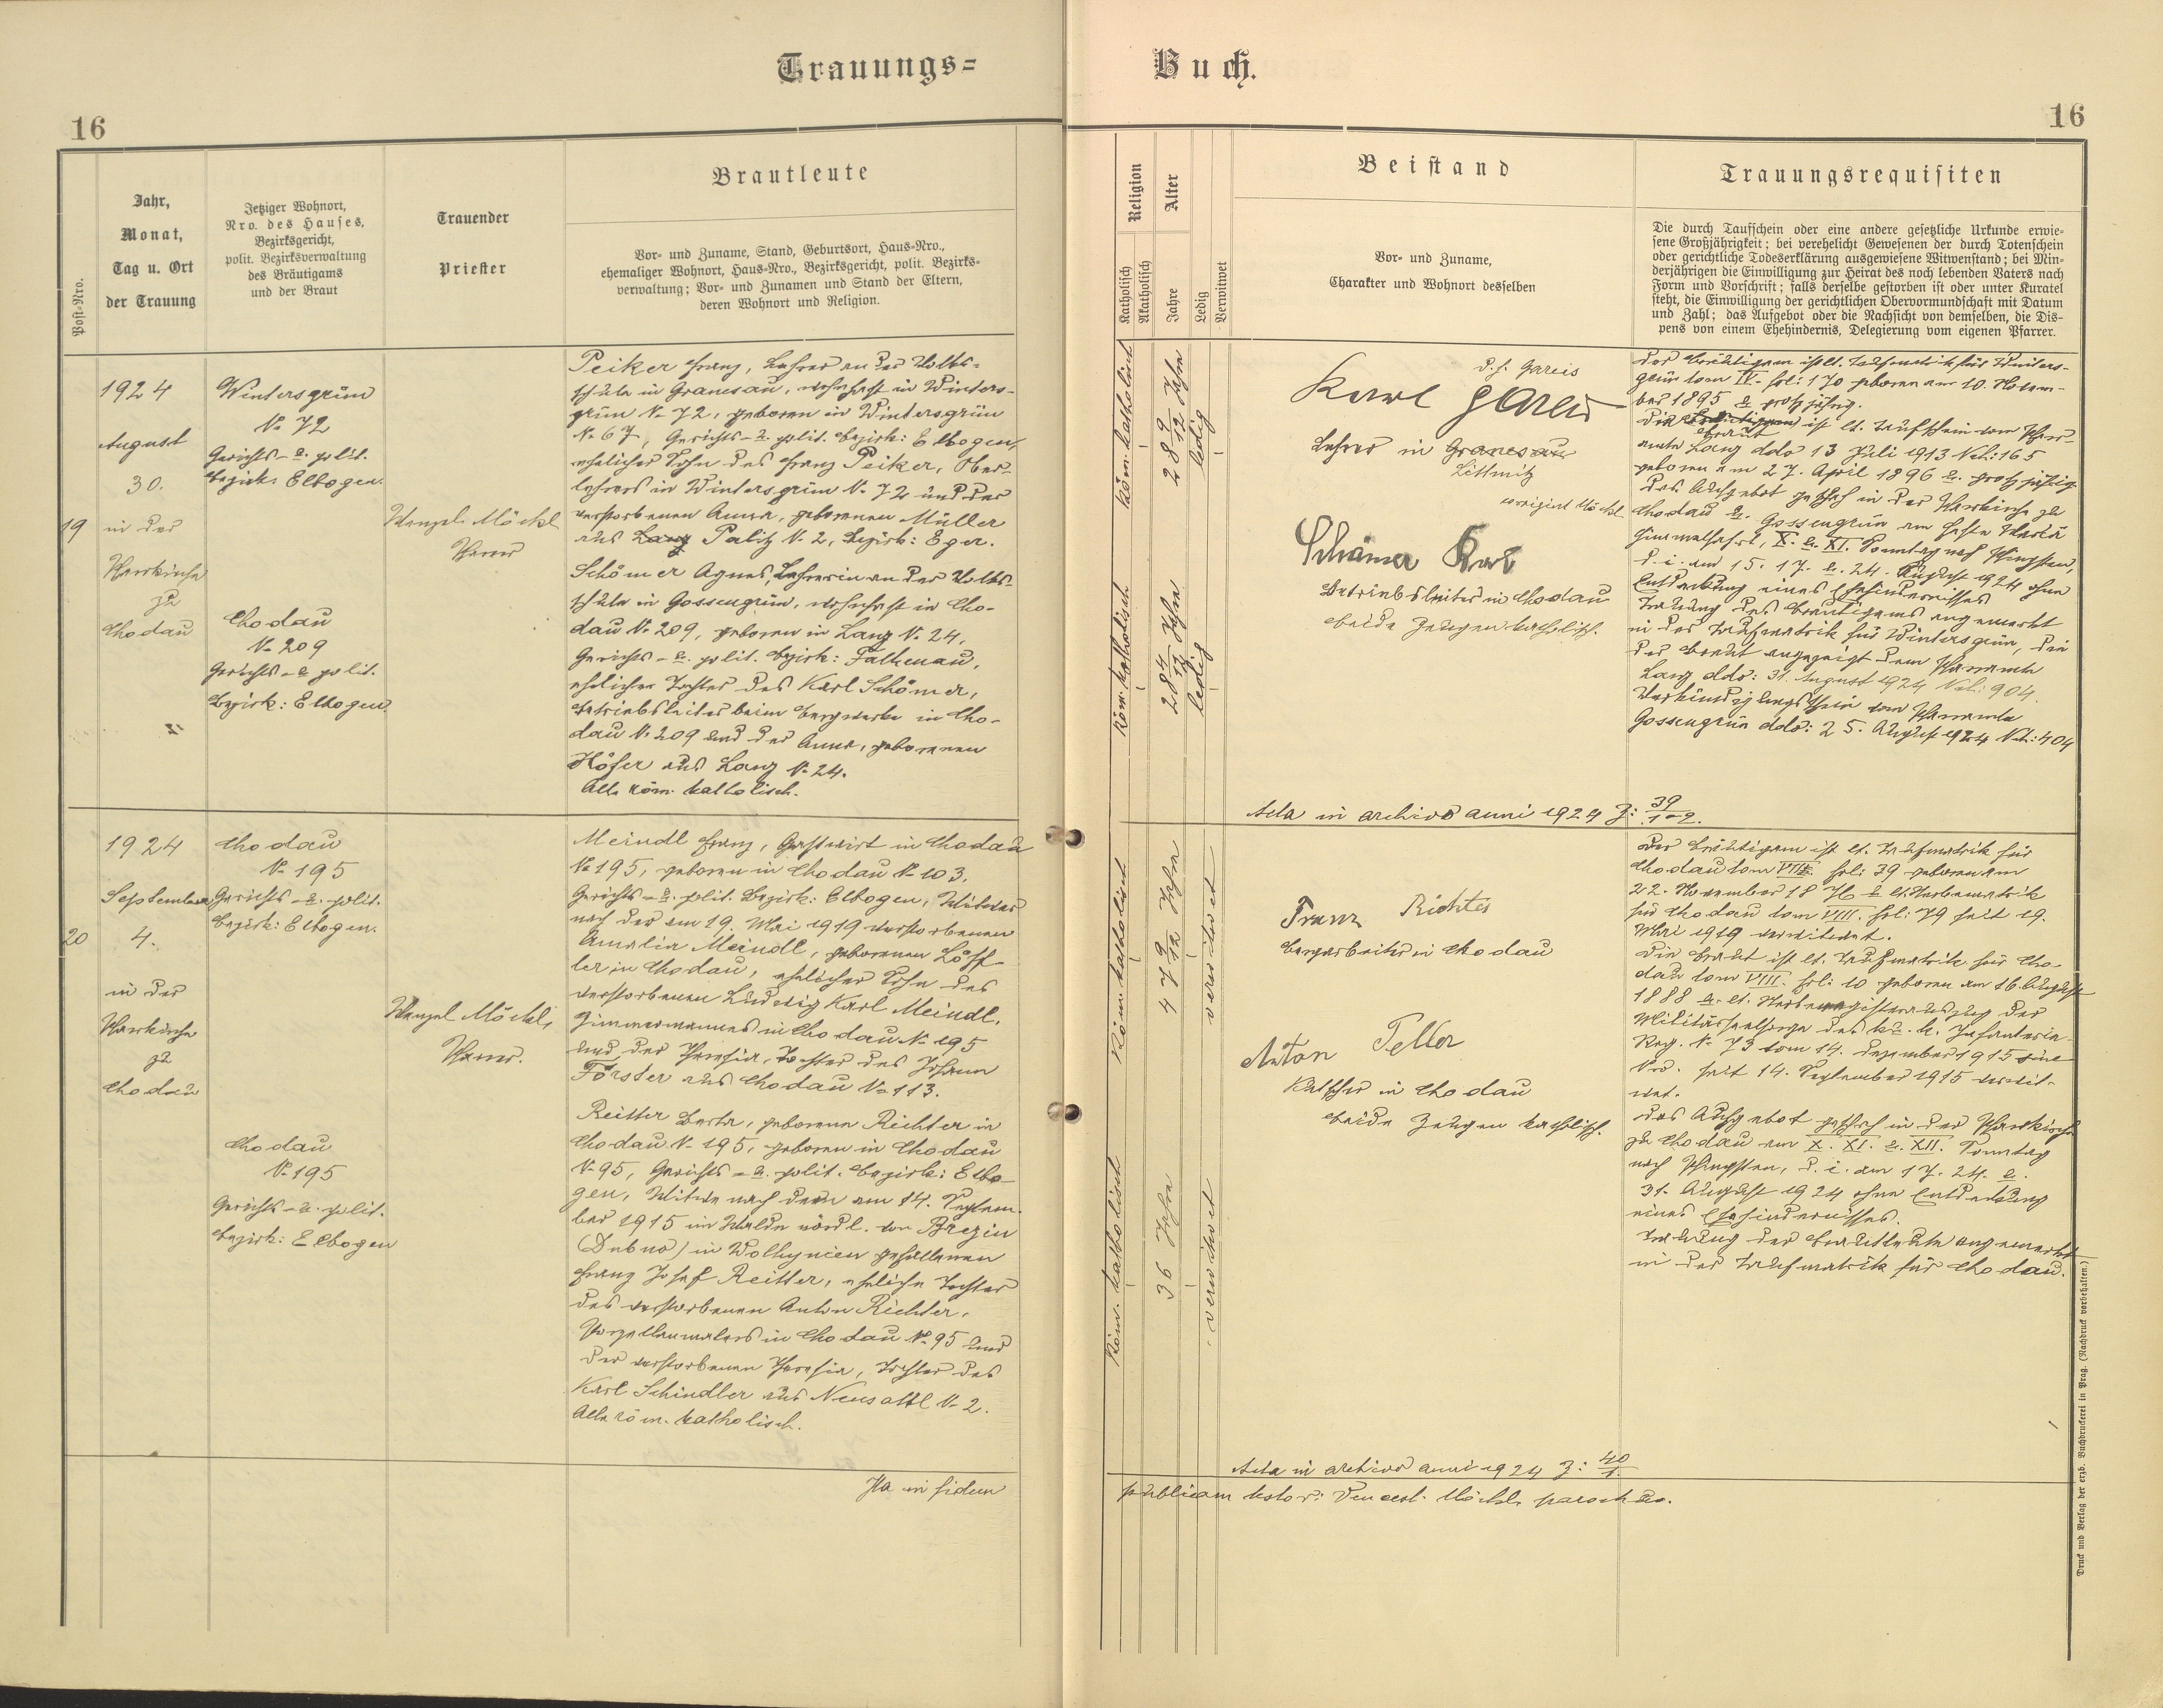 Trauungs=
Buch.
16
16
Post-Nro.
Jahr,
Monat,
Tag u. Ort
der Trauung
Jetziger Wohnort,
Nro. des Hauses,
Bezirksgericht,
polit. Bezirksverwaltung
des Bräutigams
und der Braut
Trauender
Priester
Brautleute
Vor- und Zuname, Stand, Geburtsort, Haus-Nro.,
ehemaliger Wohnort, Haus-Nro., Bezirksgericht, polit. Bezirks-
verwaltung; Vor- und Zunamen und Stand der Eltern,
deren Wohnort und Religion.
Religion
Katholisch
Akatholisch
Alter
Jahre
Ledig
Verwitwet
Beistand
Vor- und Zuname,
Charakter und Wohnort desselben
Trauungsrequisiten
Die durch Taufschein oder eine andere gesetzliche Urkunde erwie-
sene Großjährigkeit; bei verehelicht Gewesenen der durch Totenschein
oder gerichtliche Todeserklärung ausgewiesene Witwenstand; bei Min-
derjährigen die Einwilligung zur Heirat des noch lebenden Vaters nach
Form und Vorschrift; falls derselbe gestorben ist oder unter Kuratel
steht, die Einwilligung der gerichtlichen Obervormundschaft mit Datum
und Zahl; das Aufgebot oder die Nachsicht von demselben, die Dis-
pens von einem Ehehindernis, Delegierung vom eigenen Pfarrer.
19
1924
August
30.
in der
Pfarrkirche
zu
Chodau
Wintersgrün
N: 72
Gerichts- u. polit.
Bezirk: Elbogen.
Chodau
N: 209
Gerichts- u. polit.
Bezirk: Elbogen.
Wenzel Möckl
Pfarrer
Peiker Franz, Lehrer an der Volks-
schule in Granesau, wohnhaft in Winters-
grün N: 72, geboren in Wintersgrün
N: 67, Gerichts- u. polit. Bezirk: Elbogen,
ehelicher Sohn des Franz Peiker, Ober-
lehrers in Wintersgrün N: 72 und der
verstorbenen Anna, geborenen Müller
aus Lanz Palitz N: 2, Bezirk: Eger.
Schömer Agnes, Lehrerin an der Volks-
schule in Gossengrün, wohnhaft in Cho-
dau N: 209, geboren in Lanz N: 24,
Gerichts- u. polit. Bezirk: Falkenau,
eheliche Tochter des Karl Schömer,
Betriebsleiter beim Bergwerke in Cho-
dau N: 209 und der Anna, geborenen
Höfer aus Lanz N: 24.
Alle röm. katholisch.
Röm. katholisch
28 9/12 Jahre
ledig
Röm. katholisch
28 4/12 Jahre
ledig
d. h. Gareis
Karl Gareis
Lehrer in Granesau
Littmitz
corrigiert Möckl
Schömer Karl
Betriebsleiter in Chodau
beide Zeugen katholisch.
Der Bräutigam ist lt. Taufmatrik für Winters-
grün tom IV. fol: 170 geboren am 10. Novem-
ber 1895 u. großjährig.
Die Bräutigam ist lt. Taufschein vom Pfarr-
Braut
amte Lanz ddo 13 Juli 1913 N.E.: 165
geboren am 27. April 1896 u. großjährig.
Das Aufgebot geschah in der Pfarrkirche zu
Chodau u. Gossengrün am Feste Mariä
Himmelfahrt, X. u. XI. Sonntag nach Pfingsten,
d. i. am 15. 17. u. 24. August 1924 ohne
Entdeckung eines Ehehindernisses
Trauung des Bräutigams angemerkt
in der Taufmatrik für Wintersgrün, die
der Braut angezeigt dem Pfarramte
Lanz ddo: 31. August 1924 N.E.: 904.
Verkündigungsschein vom Pfarramte
Gossengrün ddo: 25. August 1924 N.E.: 404
Acta in archivo anni 1924 Z: 39/1-2.
20
1924
September
4.
in der
Pfarrkirche
zu
Chodau
Chodau
N: 195
Gerichts- u. polit.
Bezirk: Elbogen.
Chodau
N: 195
Gerichts- u. polit.
Bezirk: Elbogen
Wenzel Möckl,
Pfarrer.
Meindl Franz, Gastwirt in Chodau
N: 195, geboren in Chodau N: 103,
Gerichts- u. polit. Bezirk: Elbogen, Witwer
nach der am 19. Mai 1919 verstorbenen
Amalia Meindl, geborenen Löff-
ler in Chodau, ehelicher Sohn des
verstorbenen Ludwig Karl Meindl,
Zimmermannes in Chodau N: 195
und der Theresia, Tochter des Johann
Förster aus Chodau N: 113.
Reitter Berta, geborene Richter in
Chodau N: 195, geboren in Chodau
N: 95, Gerichts- u. polit. Bezirk: Elbo-
gen, Witwe nach dem am 14. Septem-
ber 1915 im Walde nördl. von Brezin
(Dubno) in Wolhynien gefallenen
Franz Josef Reitter, eheliche Tochter
des verstorbenen Anton Richter,
Porzellanmalers in Chodau N: 95 und
der verstorbenen Theresia, Tochter des
Karl Schindler aus Neusattl N: 2.
Alle röm. katholisch.
Röm. katholisch
47 9/12 Jahre
verwitwet
Röm. katholisch
36 Jahre
verwitwet
Franz Richter
Bergarbeiter in Chodau
Anton Teller
Kutscher in Chodau
beide Zeugen katholisch.
Der Bräutigam ist lt. Taufmatrik für
Chodau tom VIII. fol: 39 geboren am
22. November 1876 u. lt. Sterbematrik
für Chodau tom VIII. fol: 79 seit 19.
Mai 1919 verwitwet.
Die Braut ist lt. Taufmatrik für Cho-
dau tom VIII. fol: 10 geboren am 16. August
1888 u. lt. Sterberegisterauszug der
Militärseelsorge des k. u. k. Infanterie-
Reg. N: 73 vom 14. Dezember 1915 sine
Nro. seit 14. September 1915 verwit-
wet.
Das Aufgebot geschah in der Pfarrkirche
zu Chodau am X. XI. u. XII. Sonntag
nach Pfingsten, d. i. am 17. 24. u.
31. August 1924 ohne Entdeckung
eines Ehehindernisses.
Trauung der Brautleute angemerkt
in der Taufmatrik für Chodau.
Acta in archivo anni 1924 Z: 40/1.
Ita in fidem
publicam testor: Vencesl. Möckl, parochus.
Druck und Verlag der erzb. Buchdruckerei in Prag. (Nachdruck vorbehalten.)